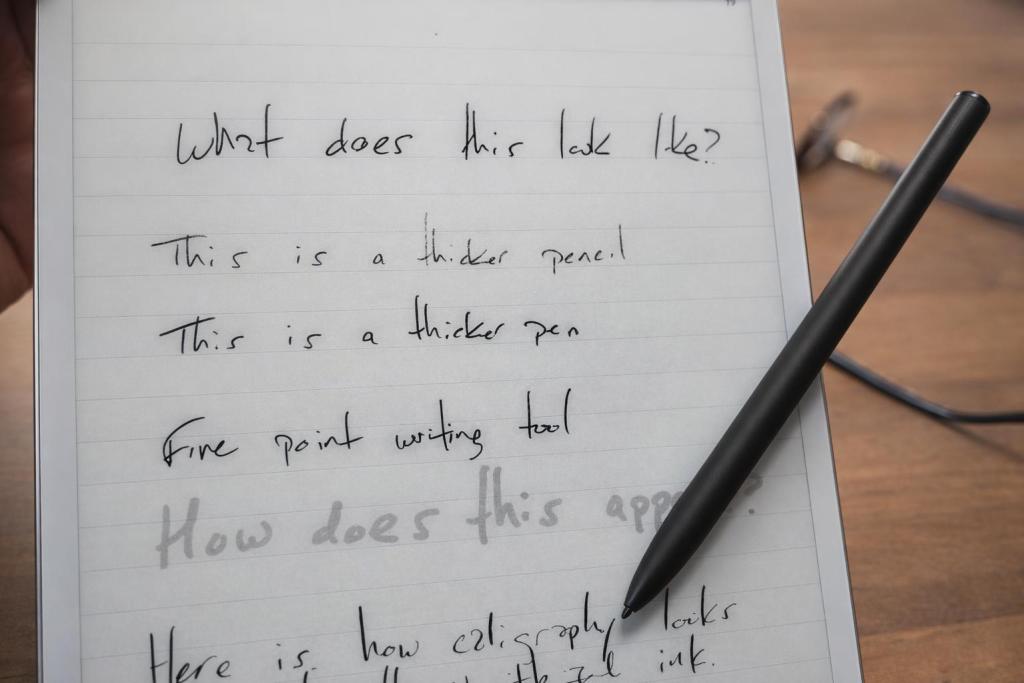 What does this look like?
This is a thicker pencil
This is a thicker pen
Fine point writing tool
How does this
Here is how caligraphy looks
ink.